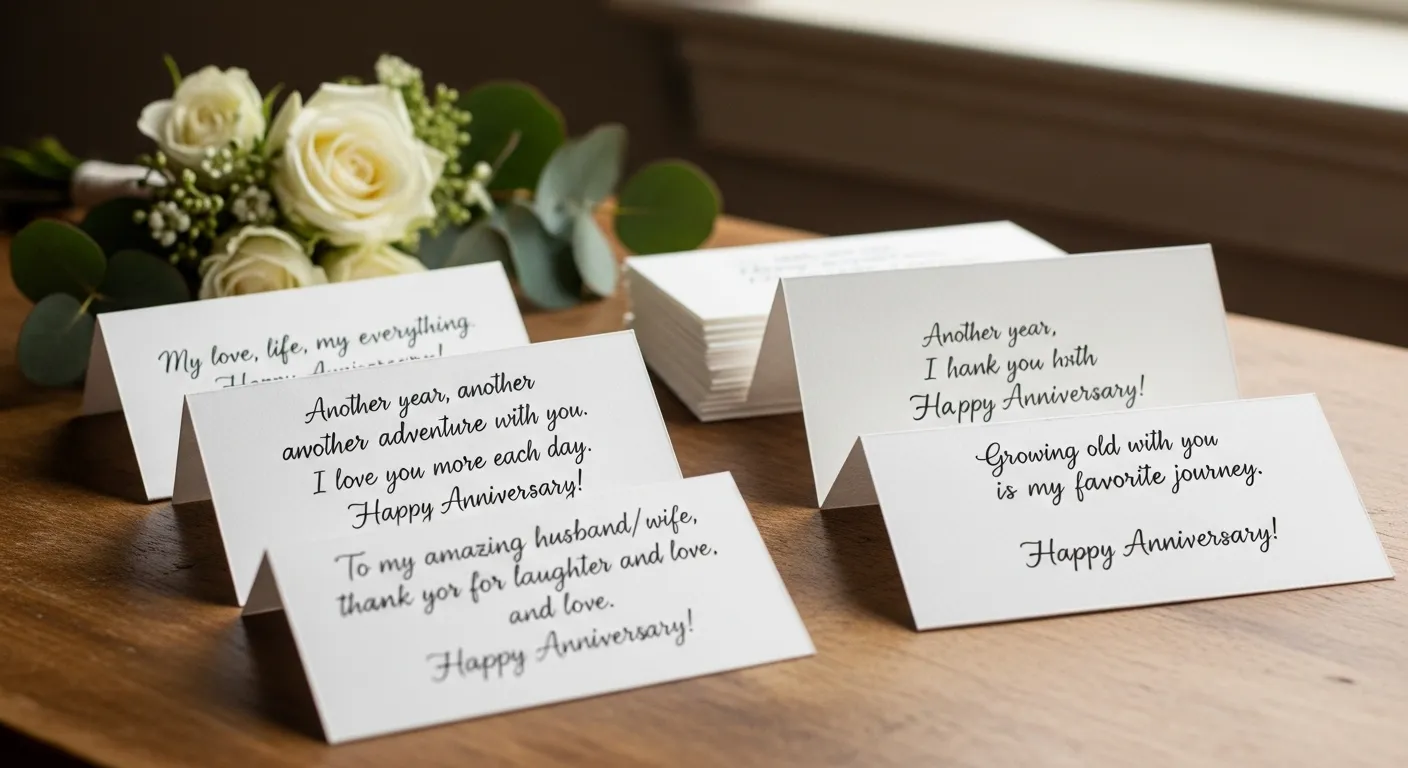 My love, life, my everything.
Happy Anniversary!
Another year, another
another adventure with you.
I love you more each day.
Happy Anniversary!
To my amazing husband/wife,
thank yor for laughter and love,
and love.
Happy Anniversary!
Another year,
I hank you hxth
Happy Anniversary!
Growing old with you
is my favorite journey.
Happy Anniversary!